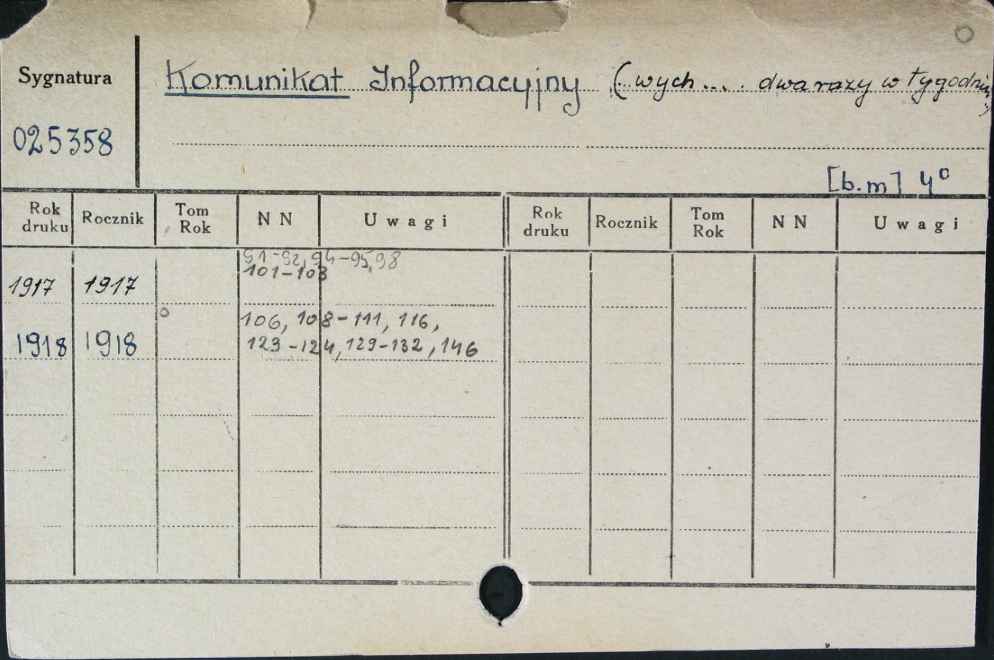 Sygnatura
Komunikat Informacyjny (wych.... dwa razy w tygodniu)
025358
[b.m] 4°
Rok druku Rocznik Tom Rok NN Uwagi Rok druku Rocznik Tom Rok NN Uwagi
91-92, 94-95, 98
1917 1917 101-103
106, 108-111, 116,
1918 1918 123-124, 129-132, 146